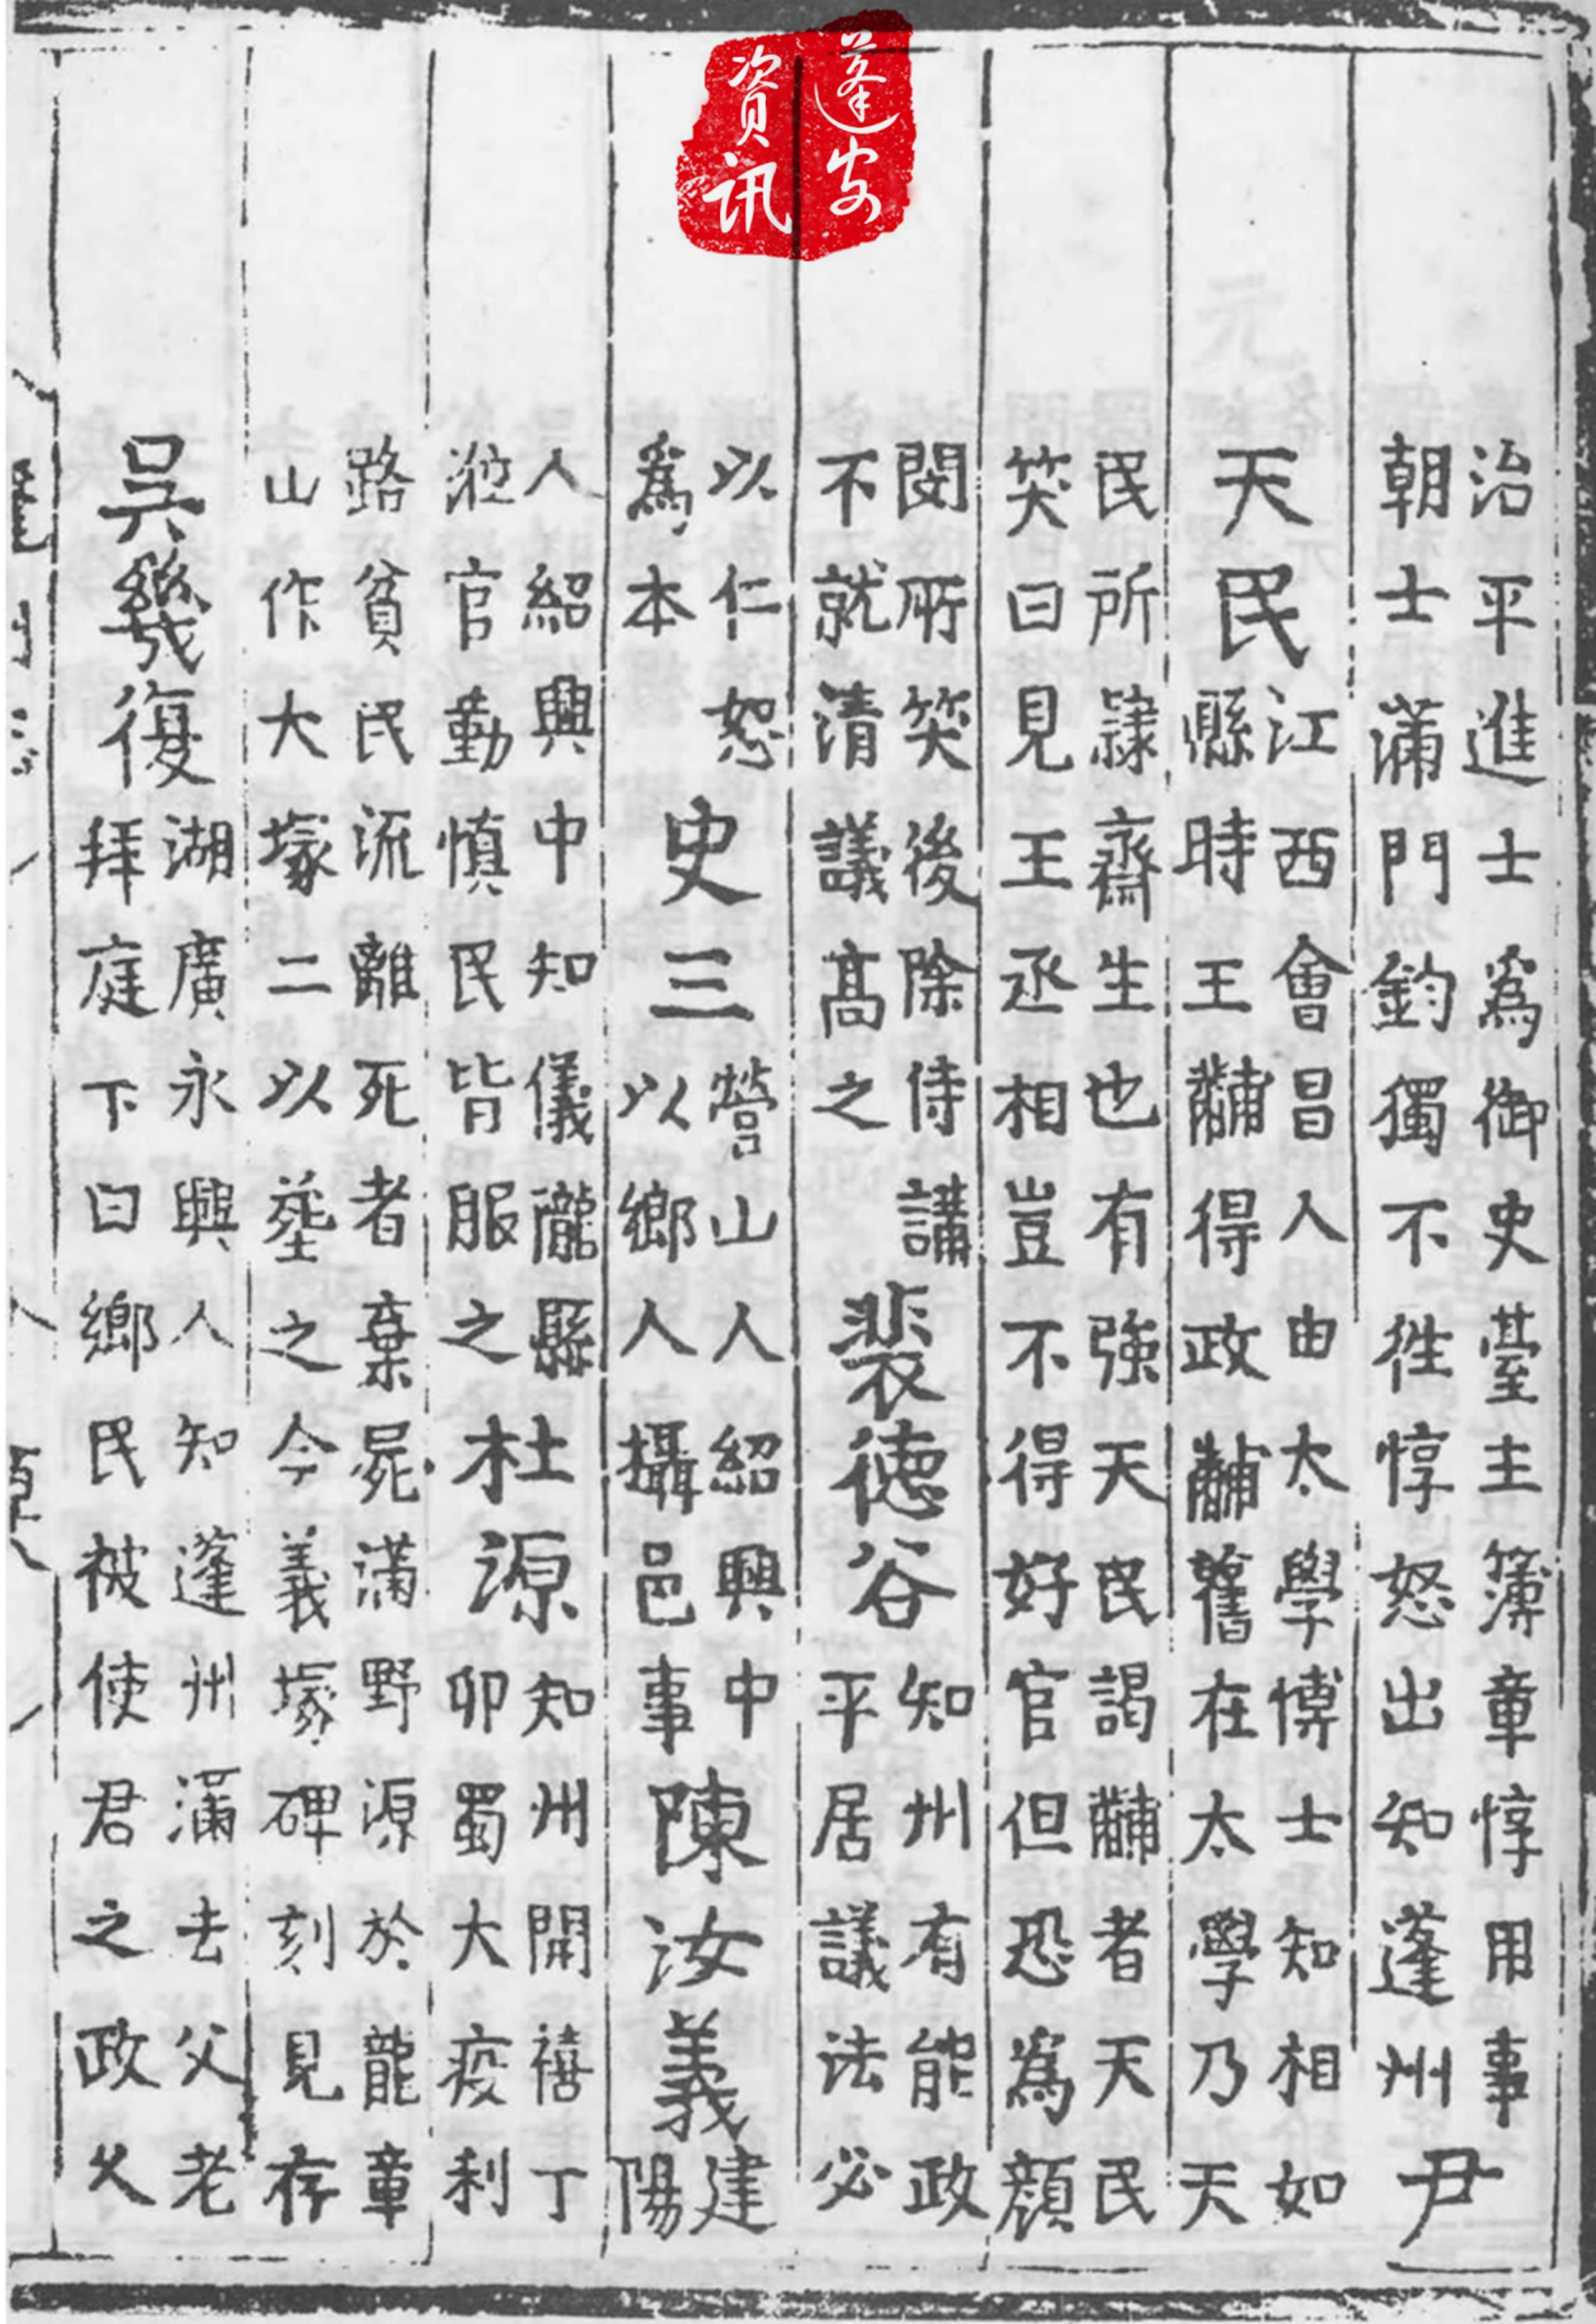 蓬安
資訊
治平進士爲御史臺主簿章惇用事
朝士滿門鈞獨不徃惇怒出知蓬州
尹
天民
江西會昌人由太學博士知相如
縣時王黼得政黼舊在太學乃天
民所隸齋生也有強天民謁黼者天民
笑曰見王丞相豈不得好官但恐爲顏
閔所笑後除侍講
不就清議髙之
裴德谷
知州有能政
平居議法必
以仁恕
爲本
史三
營山人紹興中
以鄉人攝邑事
陳汝義
建陽
人紹興中知儀隴縣
涖官勤慎民皆服之
杜源
知州開禧丁
卯蜀大疫利
路貧民流離死者棄屍滿野源於龍章
山作大塚二以塟之今義塚碑刻見存
吳幾復
湖廣永興人知蓬州滿去父老
拜庭下曰鄉民被使君之政久